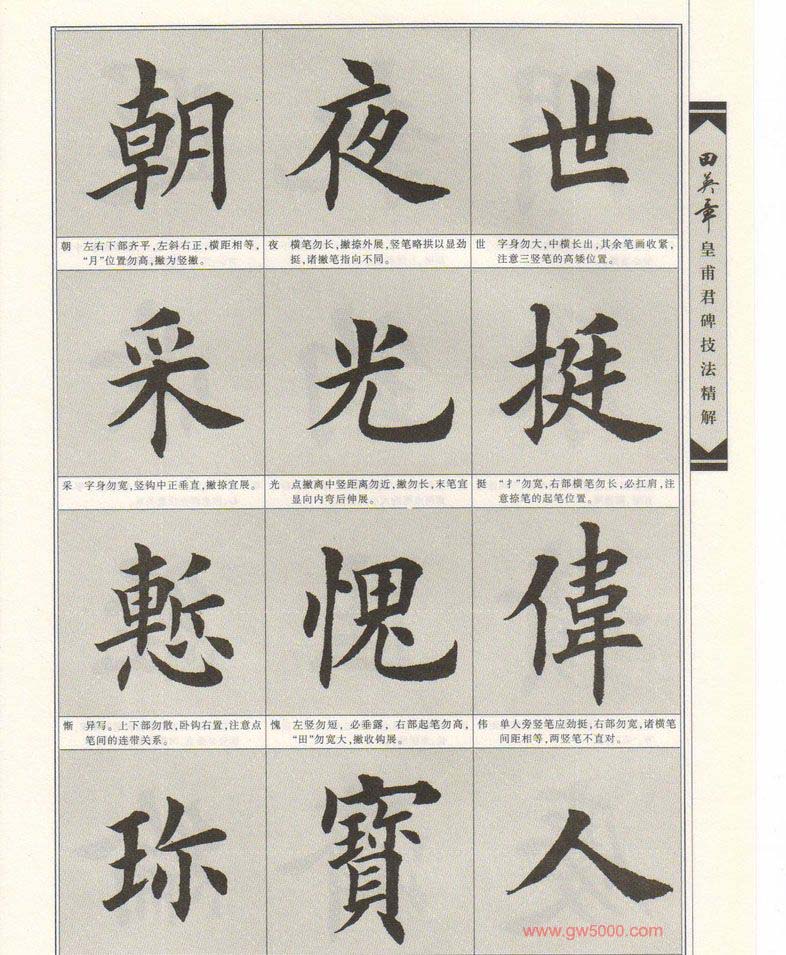 田英章
皇甫君碑技法精解
世
世 字身勿大,中横长出,其余笔画收紧,
注意三竖笔的高矮位置。
挺
挺 “扌”勿宽,右部横笔勿长,必扛肩,注
意捺笔的起笔位置。
偉
伟 单人旁竖笔应劲挺,右部勿宽,诸横笔
间距相等,两竖笔不直对。
人
夜
夜 横笔勿长,撇捺外展,竖笔略拱以显劲
挺,诸撇笔指向不同。
光
光 点撇离中竖距离勿近,撇勿长,末笔宜
显向内弯后伸展。
愧
愧 左竖勿短,必垂露,右部起笔勿高,
“田”勿宽大,撇收钩展。
寶
朝
朝 左右下部齐平,左斜右正,横距相等,
“月”位置勿高,撇为竖撇。
采
采 字身勿宽,竖钩中正垂直,撇捺宜展。
慙
惭 异写。上下部勿散,卧钩右置,注意点
笔间的连带关系。
珎
www.gw5000.com